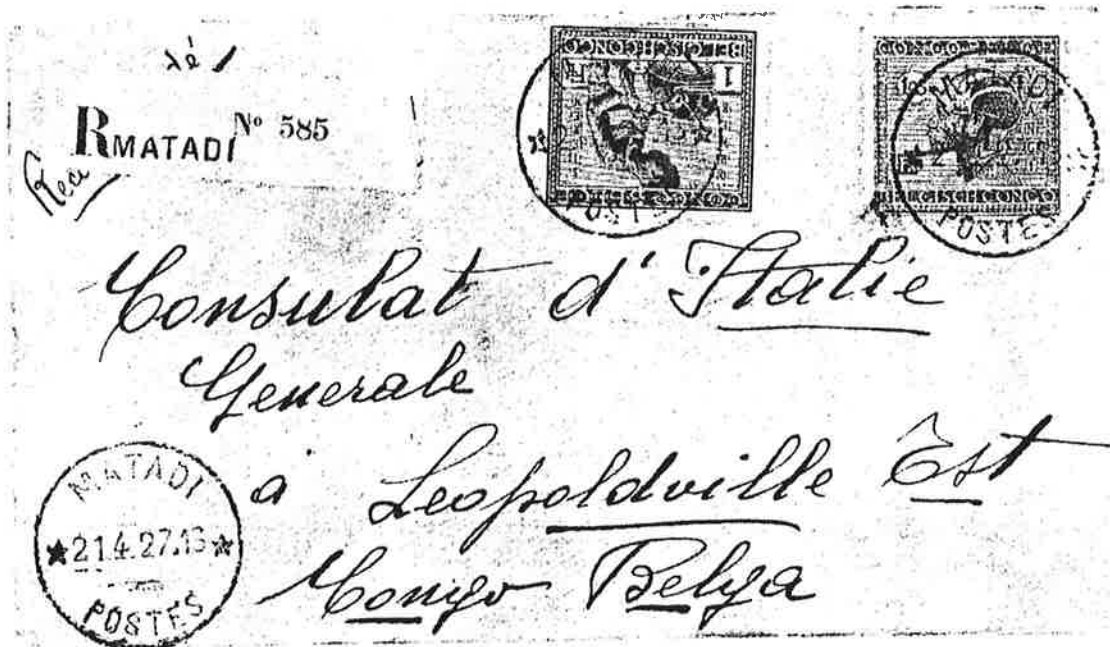 té
R MATADI Nº 585
Rec
BELGISCH CONGO
1 FR
1
MATADI
BELGISCH CONGO
POSTES
Consulat d' Italie
Generale
à Leopoldville Est
Congo Belga
MATADI
★21.4.27.13★
POSTES